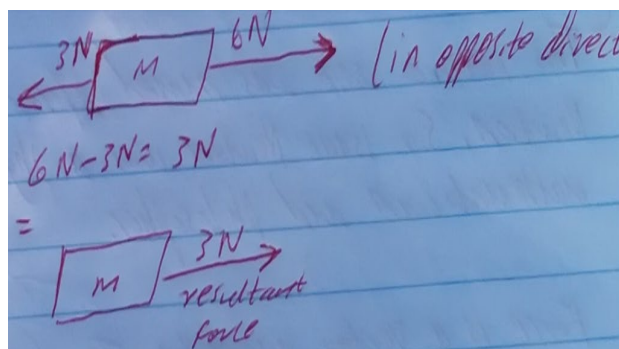 3N M 6N (in opposite direct
6N-3N= 3N
=
M 3N
resultant
force